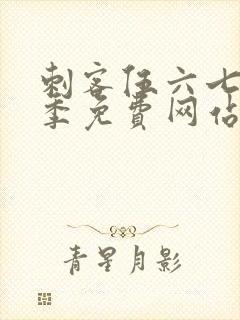 刺客伍六七
季免費网佔
青星月影